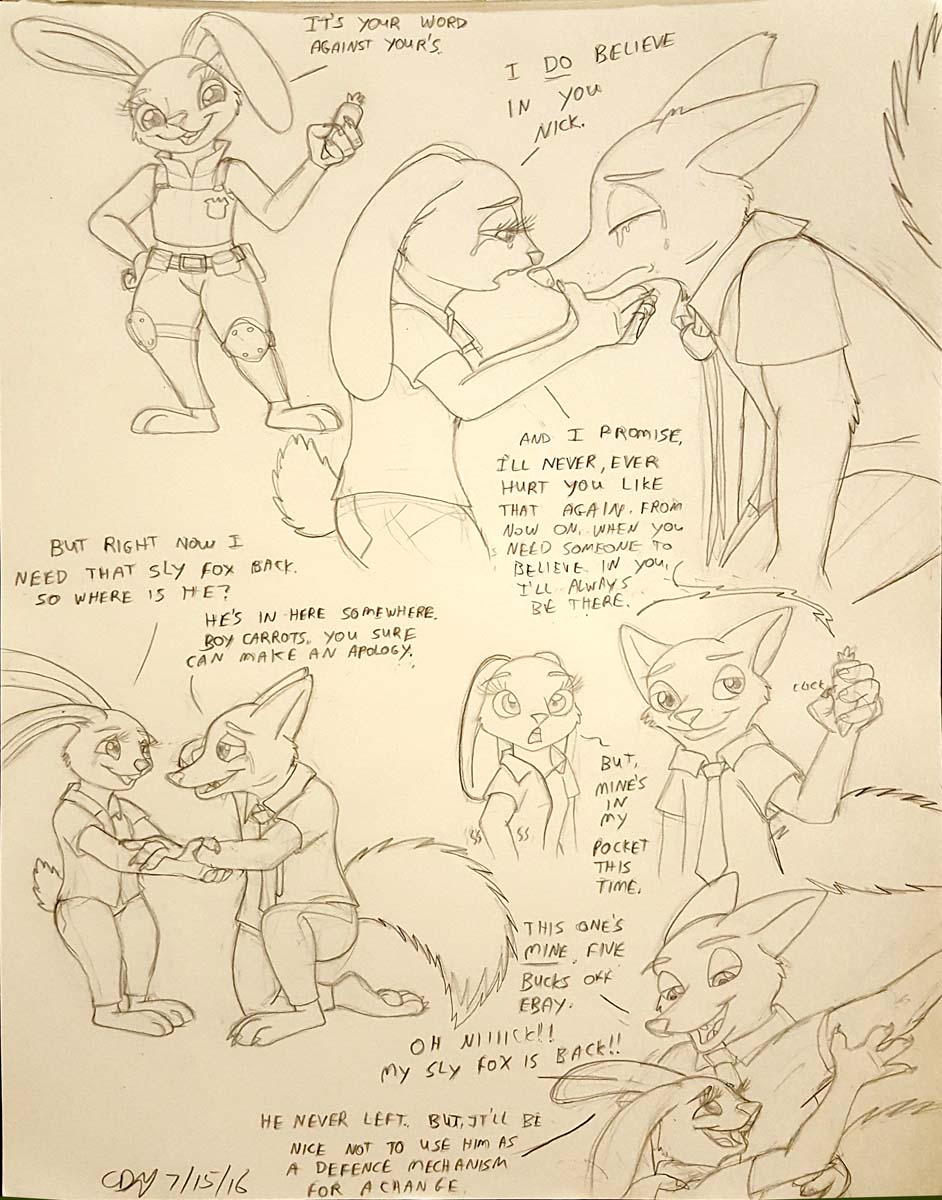 IT'S YOUR WORD
AGAINST YOUR'S.
I DO BELIEVE
IN YOU
NICK.
AND I PROMISE,
I'LL NEVER, EVER
HURT YOU LIKE
THAT AGAIN. FROM
NOW ON, WHEN YOU
NEED SOMEONE TO
BELIEVE IN YOU,
I'LL ALWAYS
BE THERE.
BUT RIGHT NOW I
NEED THAT SLY FOX BACK.
SO WHERE IS HE?
HE'S IN HERE SOMEWHERE.
BOY CARROTS, YOU SURE
CAN MAKE AN APOLOGY.
CLICK
BUT,
MINE'S
IN
MY
POCKET
THIS
TIME.
THIS ONE'S
MINE. FIVE
BUCKS OFF
EBAY.
OH NIIIICK!!
MY SLY FOX IS BACK!!
HE NEVER LEFT. BUT, IT'LL BE
NICE NOT TO USE HIM AS
A DEFENCE MECHANISM
FOR A CHANGE.
CDM 7/15/16